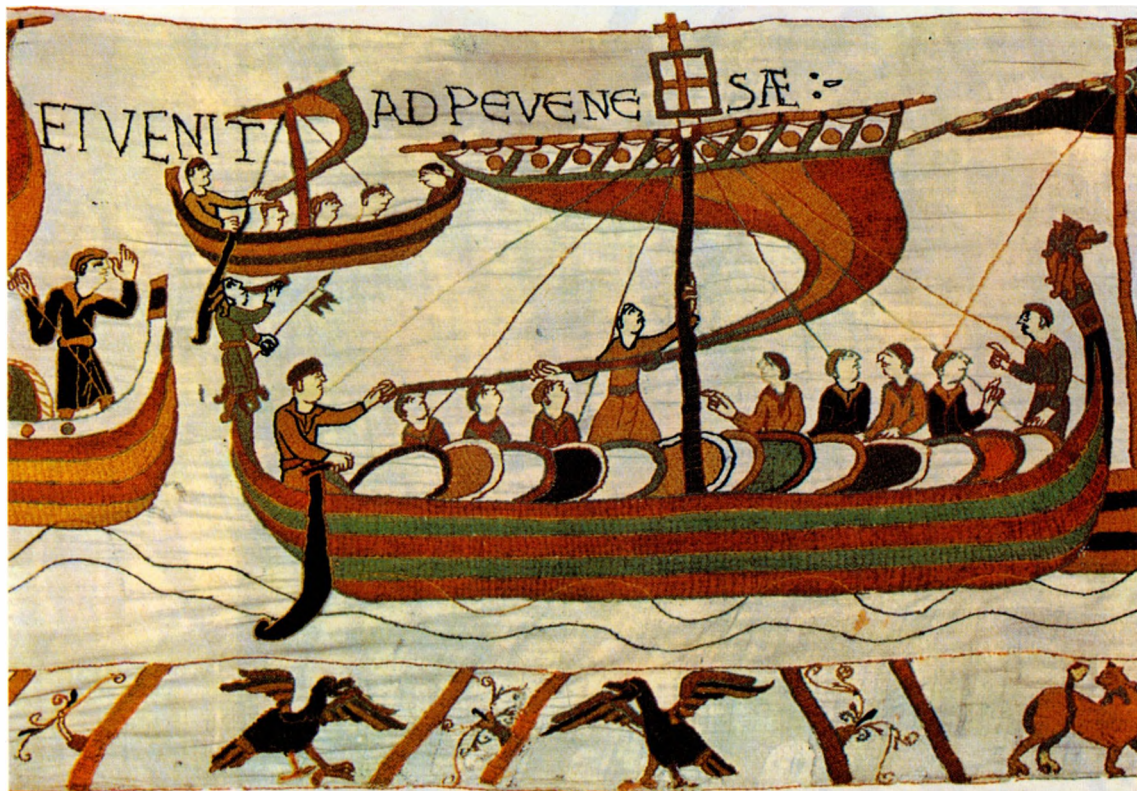 ET VENIT AD PEVENESÆ